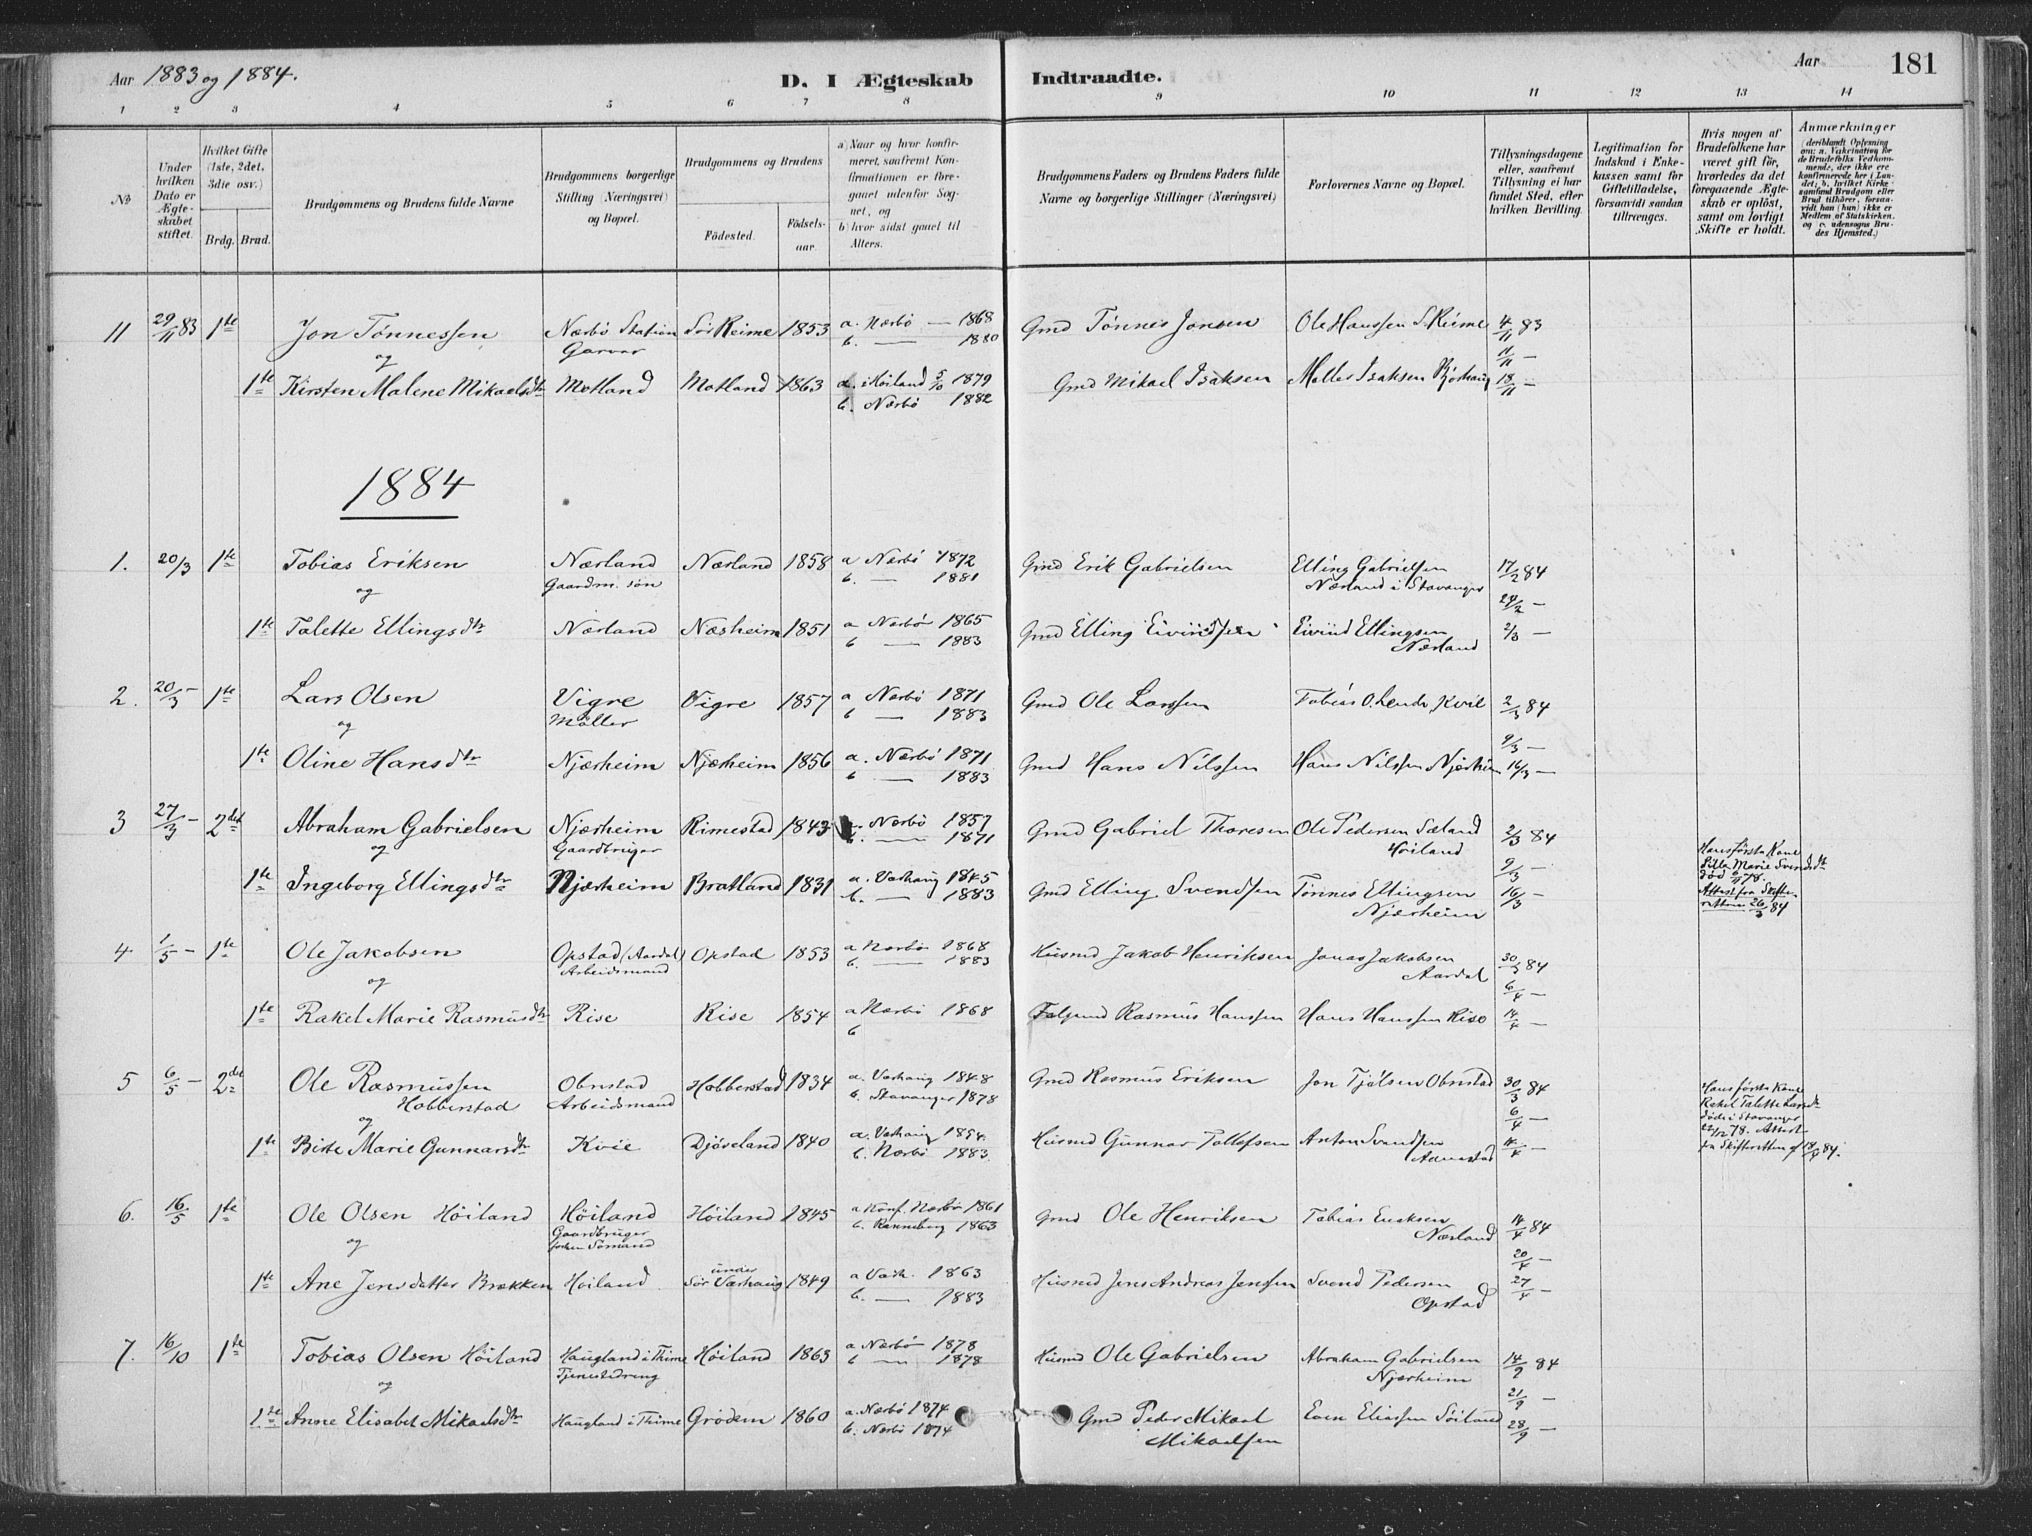 Aar 1883 og 1884.
D. I Ægteskab Indtraadte.
Aar 181
1 2 3 4 5 6 7 8 9 10 11 12 13 14
No
Under hvilken Dato er Ægteskabet stiftet.
Hvilket Gifte (1ste, 2det, 3die osv.)
Brdg. Brud.
Brudgommens og Brudens fulde Navne
Brudgommens borgerlige Stilling (Næringsvei) og Bopæl.
Brudgommens og Brudens
Födested. Födselsaar.
a) Naar og hvor konfirmeret, saafremt Konfirmationen er foregaaet udenfor Sognet, og
b) hvor sidst gaaet til Alters.
Brudgommens Faders og Brudens Faders fulde Navne og borgerlige Stillinger (Næringsvei)
Forlovernes Navne og Bopæl.
Tillysningsdagene eller, saafremt Tillysning ei har fundet Sted, efter hvilken Bevilling.
Legitimation for Indskud i Enkekassen samt for Giftetilladelse, forsaavidt saadan tiltrænges.
Hvis nogen af Brudefolkene har været gift för, hvorledes da det foregaaende Ægteskab er oplöst, samt om lovligt Skifte er holdt.
Anmærkninger (deriblandt Oplysning om: a. Vakcination for de Brudefolks Vedkommende, der ikke ere konfirmerede her i Landet; b. hvilket Kirkesamfund Brudgom eller Brud tilhörer, forsaavidt han (hun) ikke er Medlem af Statskirken, og c. udensogns Brudes Hjemsted.)
11 29/11 83 1te Jon Tønnessen Nærbö Station Sör Reime 1853 a. Nærbö — 1868 Gmd Tønnes Jonsen Ole Hanssen S. Reime 4/11 83
og b. — 1880 11/11 —
1te Kirsten Malene Mikaelsdtr Motland Motland 1863 a. i Höiland 5/10 1879 Gmd Mikael Isaksen 18/11 —
b. Nærbö 1882
1884
1. 20/3 1te Tobias Eriksen Nærland Nærland 1858 a Nærbö 1872 Gmd Erik Gabrielsen Elling Gabrielsen 17/2 84
og Gaardm. sön b. — 1881 Nærland i Stavanger 24/2 —
1te Talette Ellingsdtr Nærland Næsheim 1851 a Nærbö 1865 Gmd Elling Eivindsen Eivind Ellingsen 2/3 —
b — 1883 Nærland
2. 20/3 — 1te Lars Olsen Vigre Vigre 1857 a Nærbö 1871 Gmd Ole Larssen Tobias O. Lende, Kvil 2/3 84
og Möller b — 1883 9/3 —
1te Oline Hansdtr Njærheim Njærheim 1856 a. Nærbö 1871 Gmd Hans Nilssen Hans Nilssen Njærheim 16/3 —
b — 1883
3 27/3 — 2det Abraham Gabrielsen Njærheim Rimestad 1843 a. Nærbö 1857 Gmd Gabriel Thoresen Ole Pedersen Sæland 2/3 84
og Gaardbruger b. — 1871 Höiland 9/3 —
1te Ingeborg Ellingsdtr Njærheim Bratland 1831 a. Varhaug 1845 Gmd Elling Svendsen Tønnes Ellingsen 16/3 —
b. — 1883 Njærheim
Hans första Kone
Marie Svendsdt
död 78.
Attest fra Skifteretten 26/3 84
4 1/5 — 1te Ole Jakobsen Opstad (Aardal) Opstad 1853 a Nærbö 1868 Husmd Jakob Henriksen Jonas Jakobsen 30/3 84
og Arbeidsmand b. — 1883 Aardal 6/4 —
1te Rakel Marie Rasmusdtr Rise Rise 1854 a Nærbö 1868 Rasmus Hanssen Hans Hanssen Rise 14/4 —
b
5 6/5 — 2det Ole Rasmussen Obrestad Hobberstad 1834 a. Varhaug 1848 Gmd Rasmus Eriksen Jon Tjølsen Obrestad 30/3 84
Hobberstad Arbeidsmand b. Stavanger 1878 6/4 —
og
1te Berte Marie Gunnarsdtr Kvie Djöseland 1840 a. Varhaug 1854 Husmd Gunnar Tollefsen Anton Svendsen 14/4 —
b. Nærbö 1883.
Hans förste Kone
Rakel Talette Larsdtr
döde i Stavanger
22/12 78. Attest
fra Skifteretten af 18/4 84.
6. 16/5 1te Ole Olsen Höiland Höiland Höiland 1845 a Konf. Nærbö 1861 Gmd Ole Henriksen Tobias Eriksen 14/4 84
og Gaardbruger b. Renneberg 1863 Nærland 20/4 —
Sömand
1te Ane Jensdatter Brækken Höiland under Sör Varhaug 1849 a Varh. 1863 Husmd Jens Andreas Jenssen Svend Pedersen 27/4 —
b. — 1883 Opstad
7. 16/10 1te Tobias Olsen Höiland Haugland i Thime Höiland 1863 a Nærbö 1878 Husmd Ole Gabrielsen Abraham Gabrielsen 14/9 84
og Tjenestedreng b — 1878 Njærheim 21/9 —
1te Anne Elisabet Mikaelsdtr Haugland i Thime Grödem 1860 a. Nærbö 1874 Gmd Peder Mikael Even Eliassen Söiland 28/9 —
b. Nærbö 1874 Mikaelsen